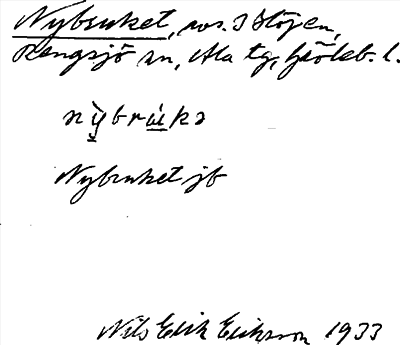 Nybruket, avs. i Stojen,
Rengsjö sn, Ala tg, Gävleb. l.
nỳ̲brú̲kə
Nybruket jb
Nils Erik Eriksson 1933